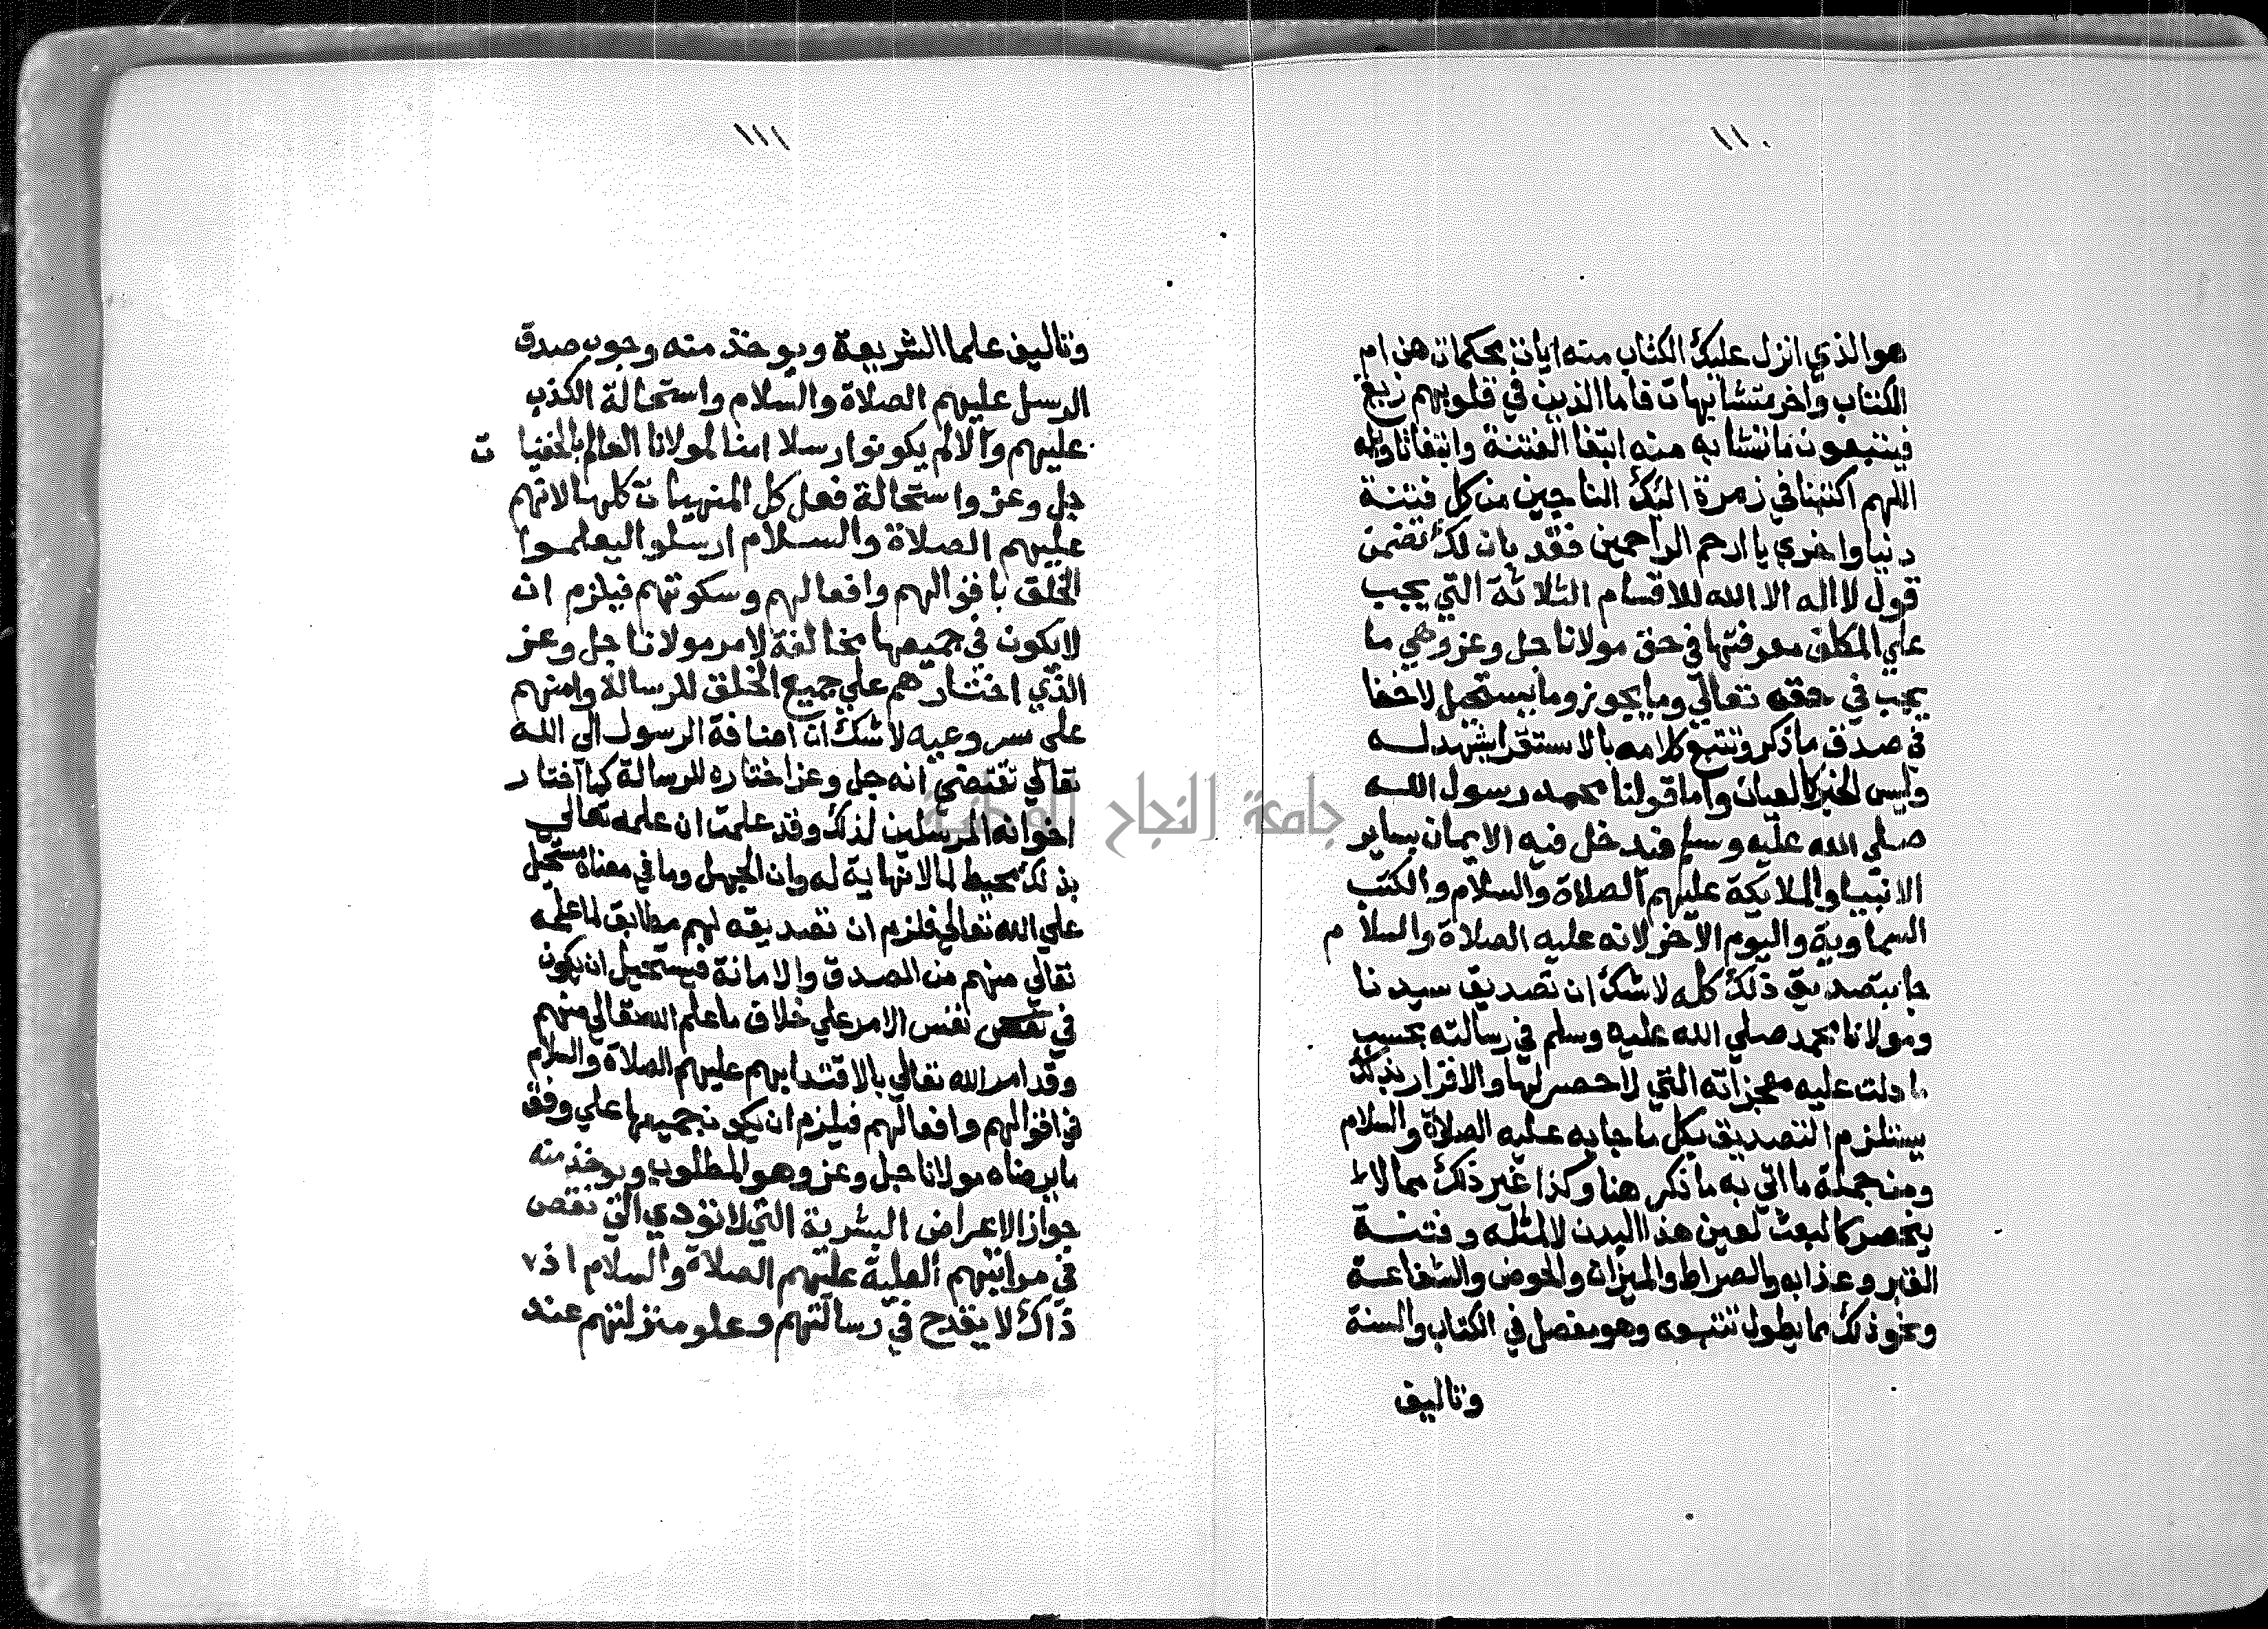 ١١٠
هو الذي انزل عليك الكتاب منه ايات محكمات هن ام
الكتاب واخر متشابهات فاما الذين في قلوبهم زيغ
فيتبعون ما تشابه منه ابتغا الفتنة وابتغا تاويله
اللهم اكتبنا في زمرة الناجين من كل فتنة
دنيا واخري يا ارحم الراحمين فقد بان لك تضمن
قول لا اله الا الله للاقسام الثلاثة التي يجب
علي المكلف معرفتها في حق مولانا جل وعز وهي ما
يجب في حقه تعالي وما يجوز وما يستحيل لا خفا
في صدق ما ذكر وتتبع كلامه بالاستقرا يشهد له
وليس الخبر كالعيان واما قولنا محمد رسول الله
صلي الله عليه وسلم فيدخل فيه الايمان بساير
الانبيا والملايكة عليهم الصلاة والسلام والكتب
السماوية واليوم الاخر لانه عليه الصلاة والسلام
جا بتصديق ذلك كله لا شك ان تصديق سيدنا
ومولانا محمد صلي الله عليه وسلم في رسالته بحسب
ما دلت عليه معجزاته التي لا حصر لها والاقرار بذلك
يستلزم التصديق بكل ما جا به عليه الصلاة والسلام
ومن جملة ما اتي به ما ذكر هنا وكذا غير ذلك مما لا
ينحصر كالبعث لعين هذا البدن لا لمثله وفتنة
القبر وعذابه والصراط والميزان والحوض والشفاعة
ونحو ذلك مما يطول تتبعه وهو مفصل في الكتاب والسنة
وتاليف
١١١
وتاليف علما الشريعة ويوخذ منه وجوب صدق
الرسل عليهم الصلاة والسلام واستحالة الكذب
عليهم والا لم يكونوا رسلا امنا لمولانا العالم بالخفيات
جل وعز واستحالة فعل كل المنهيات كلها لانهم
عليهم الصلاة والسلام ارسلوا ليعلموا
الخلق باقوالهم وافعالهم وسكوتهم فيلزم ان
لا يكون في جميعها مخالفة لامر مولانا جل وعز
الذي اختارهم علي جميع الخلق للرسالة وامنهم
علي سر وعيه لا شك ان اضافة الرسول الي الله
تعالي تقتضي انه جل وعز اختاره للرسالة كما اختار
اخوانه المرسلين لذلك وقد علمت ان علمه تعالي
بذلك محيط لما لا نهاية له وان الجهل وما في معناه مستحيل
علي الله تعالي فلزم ان تصديقه لهم مطابق لما علمه
تعالي منهم من الصدق والامانة فيستحيل ان يكون
في نفس الامر علي خلاف ما علم الله تعالي منهم
وقد امر الله تعالي بالاقتدا بهم عليهم الصلاة والسلام
في اقوالهم وافعالهم فيلزم ان يكون جميعها علي وفق
ما يرضاه مولانا جل وعز وهو المطلوب ويوخذ منه
جواز الاعراض البشرية التي لا تؤدي الي نقص
في مراتبهم العلية عليهم الصلاة والسلام اذ
ذاك لا يقدح في رسالتهم وعلو منزلتهم عند
جامعة النجاح الوطنية